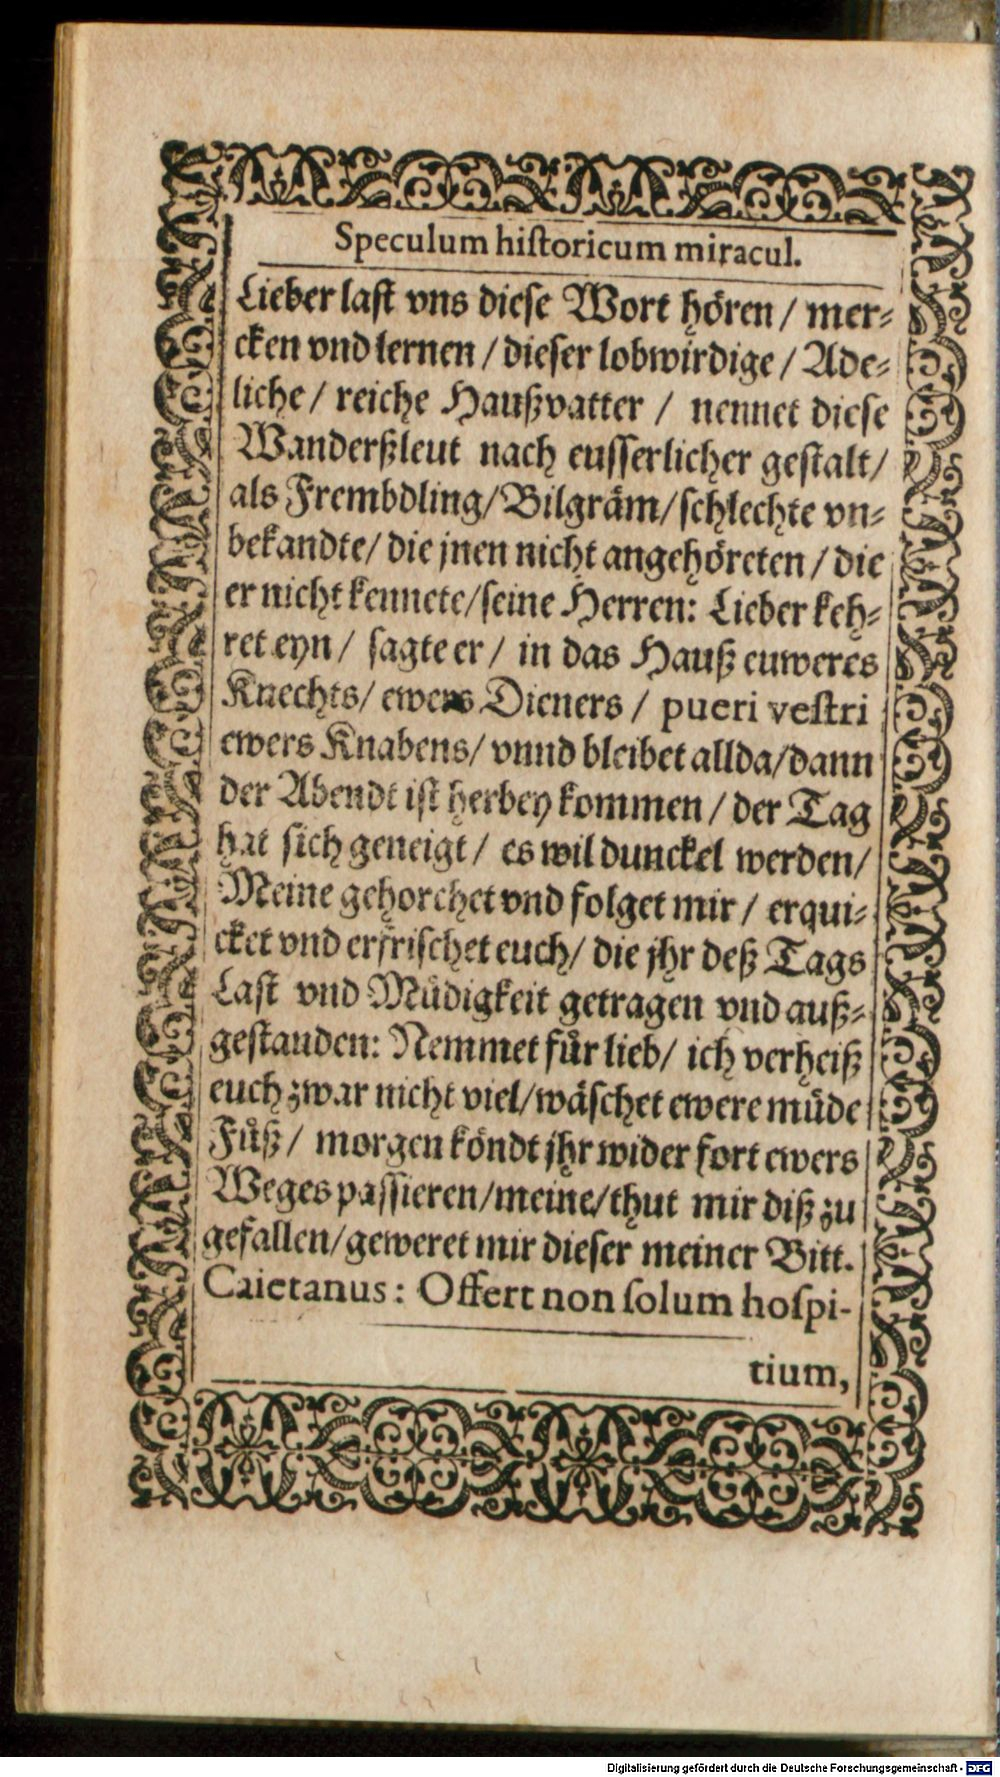 Speculum hiſtoricum miracul.
Lieber laſt vns dieſe Wort hören / mer⸗
cken vnd lernen / dieſer lobwirdige / Ade⸗
liche / reiche Haußvatter / nennet dieſe
Wanderßleut nach euſſerlicher geſtalt/
als Frembdling/Bilgräm/ſchlechte vn⸗
bekandte/ die jnen nicht angehöreten / die
er nicht kennete/ſeine Herren: Lieber keh⸗
ret eyn / ſagte er / in das Hauß euweres
Knechts/ ewers Dieners / pueri veſtri
ewers Knabens/ vnnd bleibet allda/dann
der Abendt iſt herbey kommen / der Tag
hat ſich geneigt / es wil dunckel werden/
Meine gehorchet vnd folget mir / erqui⸗
cket vnd erfriſchet euch/ die jhr deß Tags
Laſt vnd Müdigkeit getragen vnd auß⸗
geſtanden: Nemmet fuͤr lieb/ ich verheiß
euch zwar nicht viel/wäſchet ewere müde
Fuͤß / morgen köndt jhr wider fort ewers
Weges paſſieren/meine/thut mir diß zu
gefallen/geweret mir dieſer meiner Bitt.
Caietanus: Offert non ſolum hoſpi-
tium,
Digitalisierung gefördert durch die Deutsche Forschungsgemeinschaft - DFG